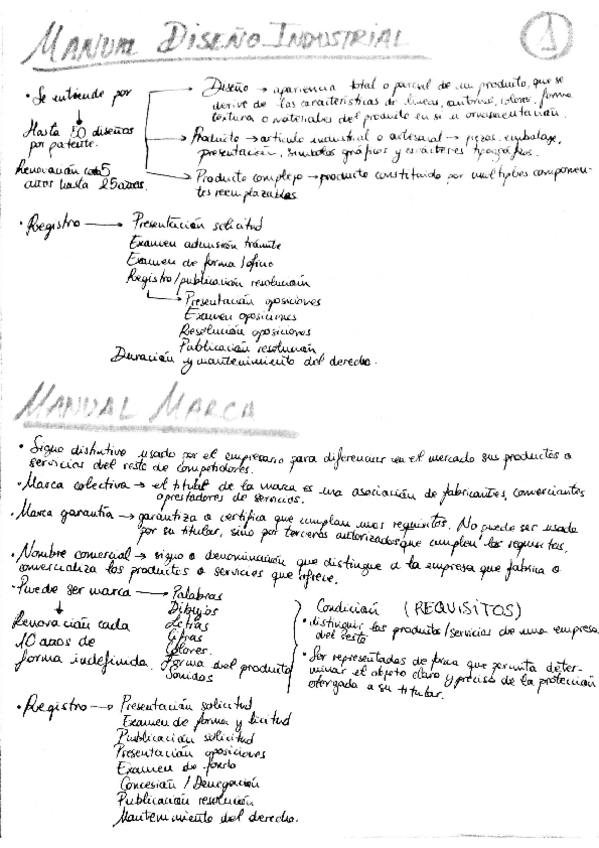 MANUAL DISEÑO INDUSTRIAL
1
• Se entiende por
Hasta 50 diseños
por patente.
Renovación cada 5
años hasta 25 años.
Diseño → apariencia total o parcial de un producto, que se
derive de las características de líneas, contornos, colores, forma
textura o materiales del producto en si u ornamentación.
Producto → artículo industrial o artesanal → piezas, embalaje,
presentación, símbolos gráficos y carácteres tipográficos.
Producto complejo → producto constituido por multiples componen-
tes reemplazables
• Registro → Presentación solicitud
Examen admisión trámite
Examen de forma/oficio
Registro/publicación resolución
→ Presentación oposiciones
Examen oposiciones
Resolución oposiciones
Publicación resolución
Duración y mantenimiento del derecho.
MANUAL MARCA
• Signo distintivo usado por el empresario para diferenciar en el mercado sus productos o
servicios del resto de competidores.
• Marca colectiva → el titular de la marca es una asociación de fabricantes, comerciantes
o prestadores de servicios.
• Marca garantía → garantiza o certifica que cumplan unos requisitos. No puede ser usada
por su titular, sino por terceros autorizados que cumplen los requisitos.
• Nombre comercial → signo o denominación que distingue a la empresa que fabrica o
comercializa los productos o servicios que ofrece.
• Puede ser marca → Palabras
Dibujos
Letras
Cifras
Colores.
Forma del producto
Sonidos
Renovación cada
10 años de
forma indefinida.
Condición (REQUISITOS)
• distinguir los productos/servicios de una empresa
del resto
• Ser representados de forma que permita deter-
minar el objeto claro y preciso de la protección
otorgada a su titular.
• Registro → Presentación solicitud
Examen de forma y licitud
Publicación solicitud
Presentación oposiciones
Examen de fondo
Concesión / Denegación
Publicación resolución
Mantenimiento del derecho.